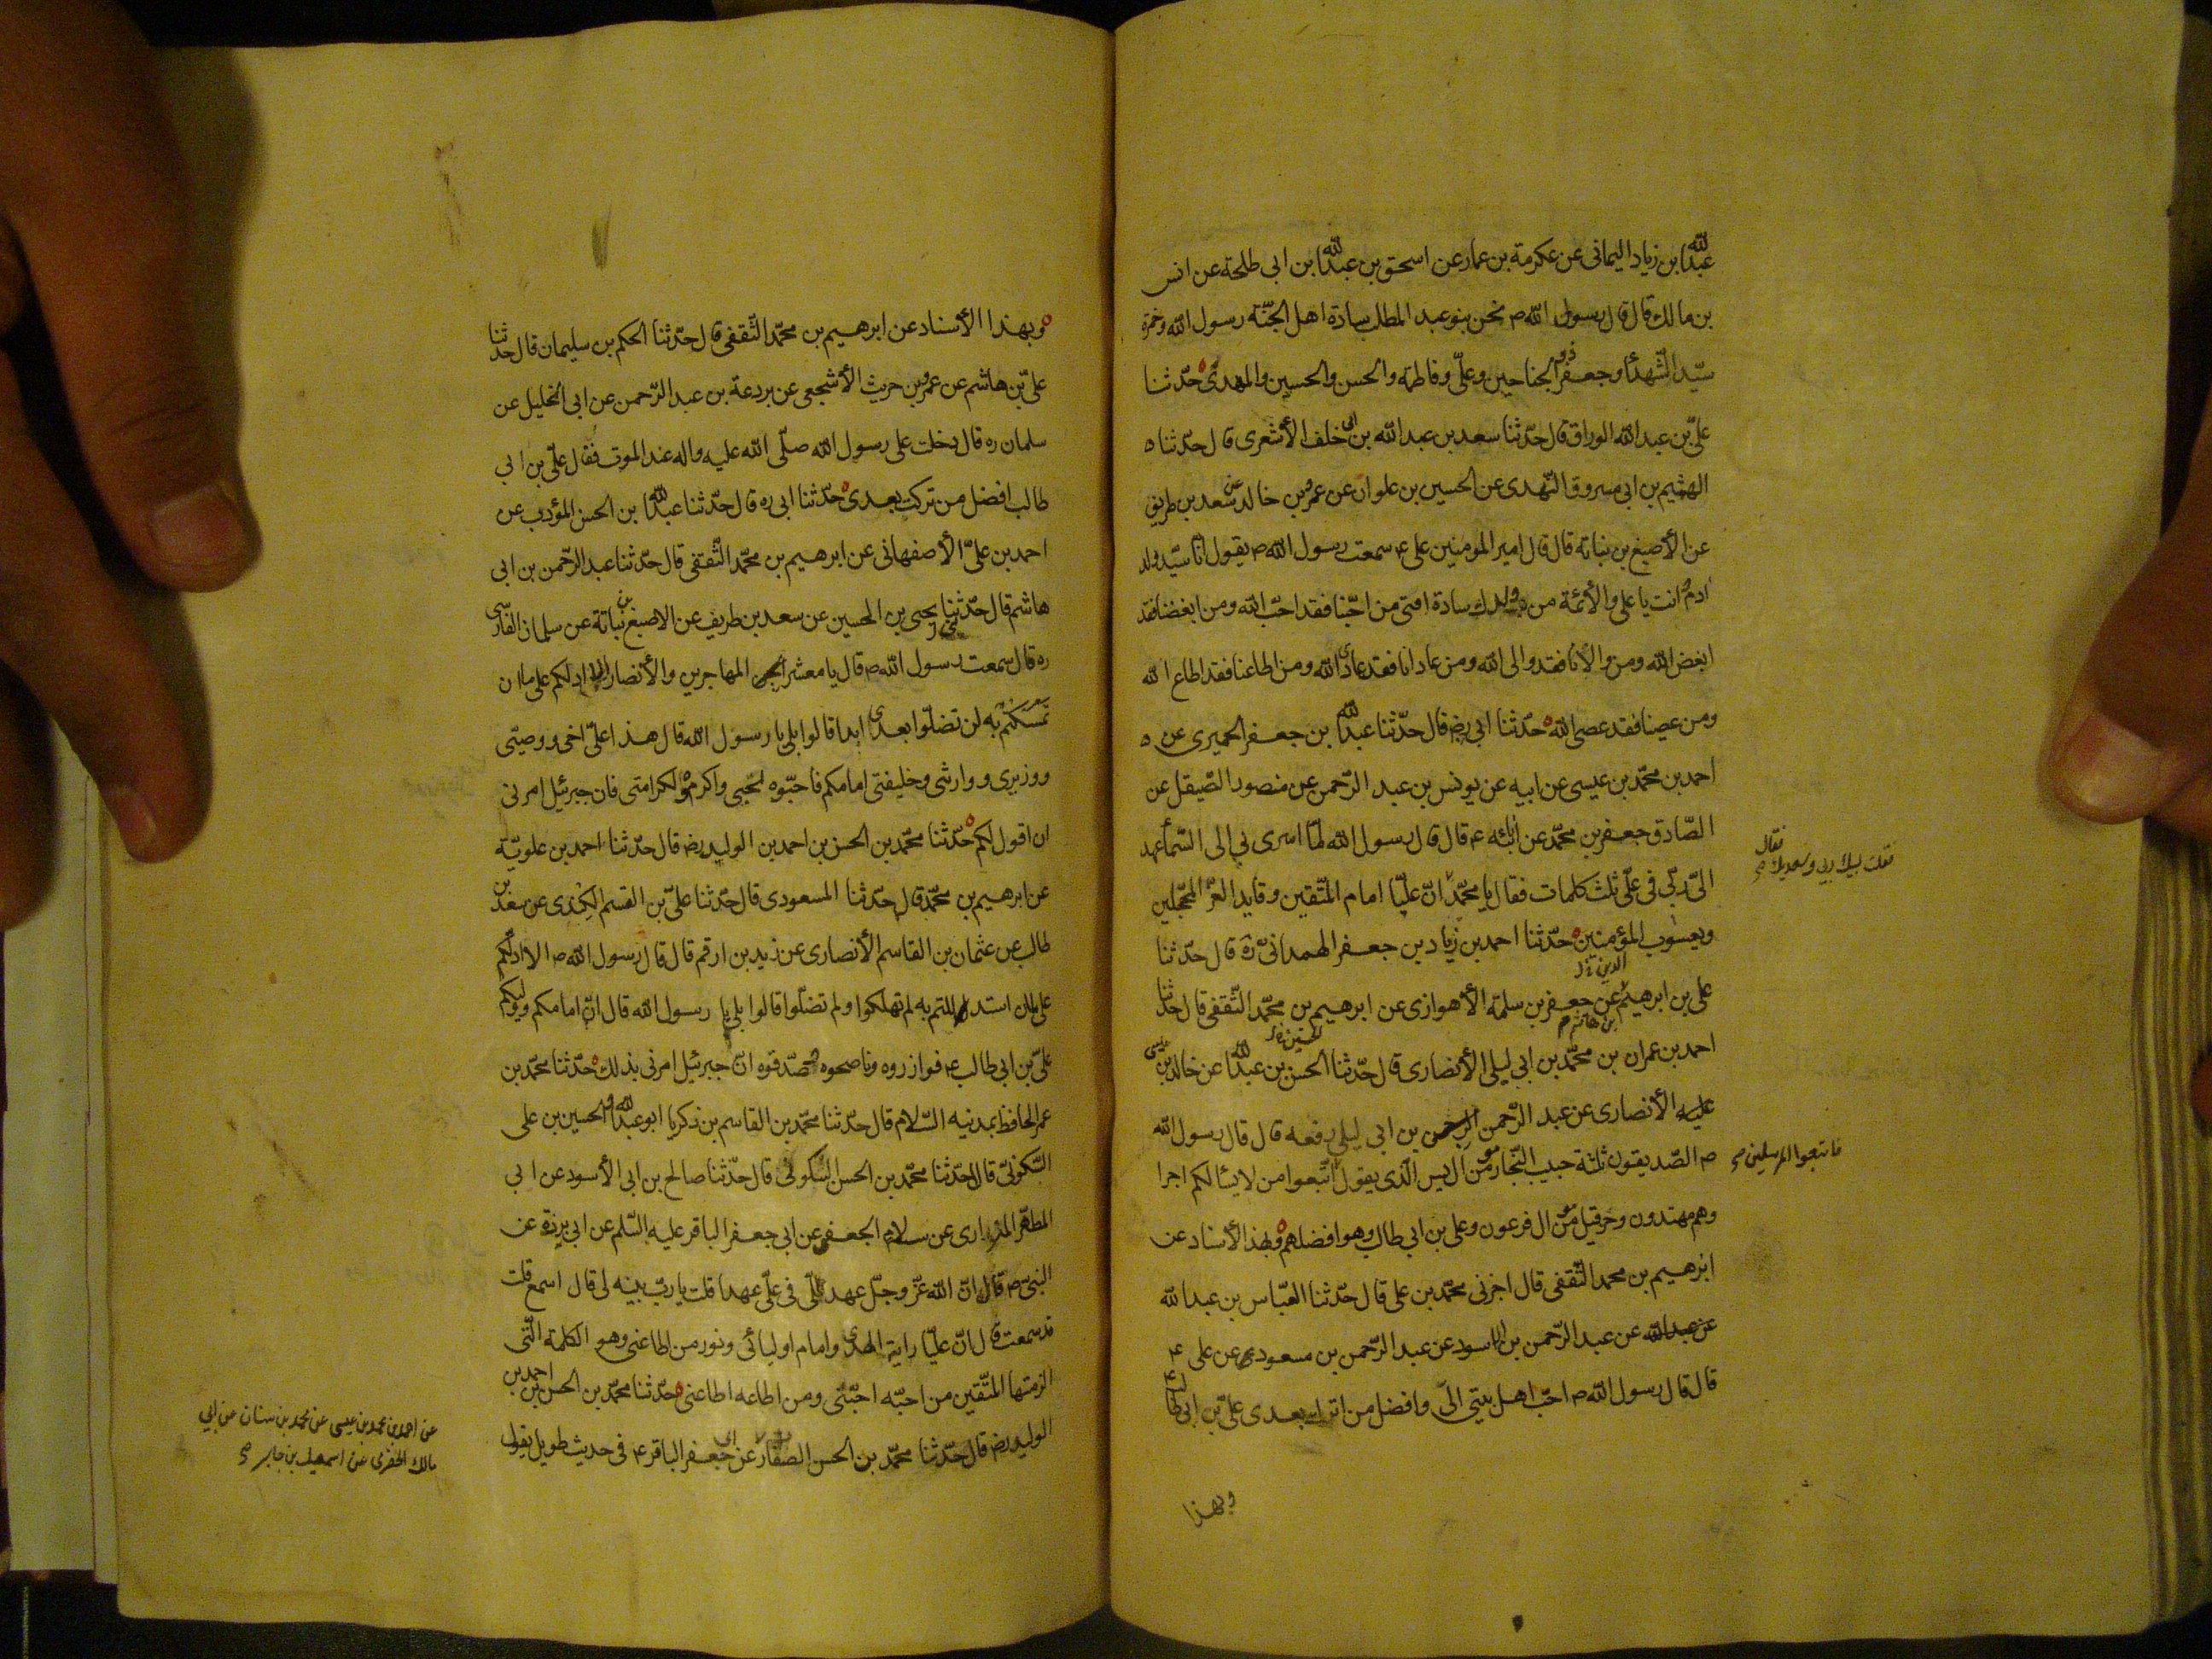 عبدالله بن زياد اليمانى عن عكرمة بن عمار عن اسحق بن عبدالله ابن ابى طلحة عن انس
بن مالك قال قال رسول الله ص نحن بنو عبد المطلب سادة اهل الجنّة رسول الله وحمزة
سيّد الشّهدآ وجعفر ذو الجناحين وعلىّ وفاطمة والحسن والحسين والمهدىّ حدّثنا
علىّ بن عبد الله الوراق قال حدّثنا سعد بن عبد الله بن ابى خلف الأشعرى قال حدّثنا
الهثيم بن ابى مسروق النّهدى عن الحسين بن علوان عن عمرو بن خالد عن سعد بن طريف
عن الأصبغ بن نباته قال قال امير المومنين على ع سمعت رسول الله ص يقول انا سيّد ولد
ادم وانت يا على والأئمة من ولدك سادة امتى من احبّنا فقد احبّ الله ومن ابغضنا فقد
ابغض الله ومن والانا فقد والى الله ومن عادانا فقد عادى الله ومن اطاعنا فقد اطاع الله
ومن عصينا فقد عصى الله حدّثنا ابى رض قال حدّثنا عبدالله بن جعفر الحميرى عن
احمد بن محمّد بن عيسى عن ابيه عن يونس بن عبد الرّحمن عن منصور الصّيقل عن
الصّادق جعفر بن محمّد عن ابائه ع قال قال رسول الله لمّا اسرى بى الى السّمآ عهد
الىّ ربّى فى علىّ ثلث كلمات فقال يا محمّد انّ عليّا امام المتّقين وقايد الغرّ المحجّلين
فقال
فقلت لبيك ربى وسعديك صح
ويعسوب المؤمنين حدّثنا احمد بن زياد بن جعفر الهمدانىّ ره قال حدّثنا
على بن ابرهيم عن جعفر بن سلمة الأهوازى عن ابرهيم بن محمّد الثّقفى قال حدّثنا
احمد بن عمران بن محمّد بن ابى ليلى الأنصارى قال حدّثنا الحسن بن عبدالله عن خالد بن عيسى
الأنصارى عن عبد الرّحمن بن ابى ليلى رفعه قال قال رسول الله
ص الصّديقون ثلثة حبيب النّجار مؤمن ال يس الّذى يقول اتّبعوا من لا يسألكم اجرا
فاتبعوا المرسلين صح
وهم مهتدون وحزقيل مؤمن ال فرعون وعلى بن ابى طالب وهو افضلهم وبهذا الأسناد عن
ابرهيم بن محمد الثّقفى قال اخبرنى محمّد بن على قال حدّثنا العبّاس بن عبد الله
عن عبد الرّحمن بن الاسود عن عبد الرّحمن بن مسعود عن على ع
قال قال رسول الله ص احبّ اهل بيتى الىّ وافضل من اترك بعدى علىّ بن ابى طالب ع
وبهذا
وبهذا الأسناد عن ابرهيم بن محمّد الثّقفى قال حدّثنا الحكم بن سليمان قال حدثنا
علىّ بن هاشم عن عمرو بن حريث الأشجعى عن بردعة بن عبد الرّحمن عن ابى الخليل عن
سلمان ره قال دخلت على رسول الله صلّى الله عليه واله عند الموت فقال علىّ بن ابى
طالب افضل من تركت بعدى حدّثنا ابى ره قال حدّثنا عبدالله بن الحسن المؤدب عن
احمد بن علىّ الأصفهانى عن ابرهيم بن محمّد الثّقفى قال حدّثنا عبد الرّحمن بن ابى
هاشم قال حدّثنا يحيى بن الحسين عن سعد بن طريف عن الاصبغ بن نباتة عن سلمان الفارسى
ره قال سمعت رسول الله ص قال يا معشر المهاجرين والأنصار الا ادلكم على ما ان
تمسكتم به لن تضلّوا بعدى ابدا قالوا بلى يا رسول الله قال هذا علىّ اخى ووصيّى
ووزيرى ووارثى وخليفتى امامكم فاحبّوه لحبى واكرموه لكرامتى فان جبرئيل امرنى
ان اقول لكم حدّثنا محمّد بن الحسن بن احمد بن الوليد رض قال حدّثنا احمد بن علويّة
عن ابرهيم بن محمّد قال حدّثنا المسعودى قال حدّثنا علىّ بن القسم الكندى عن سعد بن
طالب عن عثمان بن القاسم الأنصارى عن زيد بن ارقم قال قال رسول الله ص الا ادلّكم
على ان استدللتم به لم تهلكوا ولم تضلّوا قالوا بلى يا رسول الله قال انّ امامكم ووليّكم
علىّ بن ابى طالب ع فوازروه وناصحوه وصدّقوه انّ جبرئيل امرنى بذلك حدّثنا محمّد بن
عمر الحافظ بمدنيه السّلام قال حدّثنا محمّد بن القاسم بن زكريا ابو عبدالله والحسين بن على
السّكونىّ قالا حدّثنا محمّد بن الحسن السّكونى قال حدّثنا صالح بن ابى الأسود عن ابى
المطهّر المذارى عن سلام الجعفى عن ابى جعفر الباقر عليه السّلم عن ابى برزة عن
النبىّ ص قال انّ الله عزّ وجلّ عهد الىّ فى علىّ عهدا قلت يا ربّ بينه لى قال اسمع قلت
قد سمعت قال انّ عليّا راية الهدى وامام اوليائى ونور من اطاعنى وهو الكلمة الّتى
الزمتها المتّقين من احبّه احبّنى ومن اطاعه اطاعنى حدّثنا محمّد بن الحسن بن احمد بن
الوليد رض قال حدّثنا محمّد بن الحسن الصفّار عن ابى جعفر الباقر ع فى حديث طويل يقول
عن احمد بن محمد بن عيسى عن محمد بن سنان عن ابى
مالك الحضرمى عن اسمعيل بن جابر صح